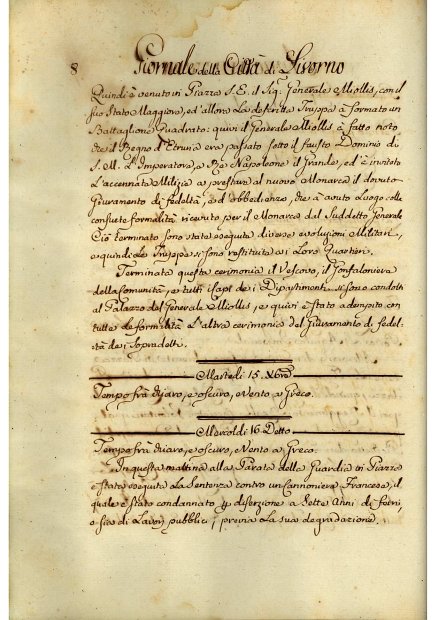 8 Giornale della Città di Livorno
Quindi è venuto in Piazza S. E. il Sig.r Generale Miollis, con il
suo Stato Maggiore, ed allora La descritta Truppa à formato un
Battaglione Quadrato: quivi il Generale Miollis à fatto noto
che il Regno d'Etruria era passato sotto il fausto Dominio di
S. M. L'Imperatore, e Rè Napoleone il grande, ed à invitata
L'accennata Milizia a prestare al nuovo Monarca il dovuto
Giuramento di fedeltà, e d'obbedienza, che à avuto Luogo colle
consuete formalità ricevuto per il Monarca dal Suddetto Generale
Ciò terminato sono state eseguite diverse evoluzioni Militari,
e quindi Le Truppe si sono restituite ai Loro Quartieri.
Terminata questa cerimonia il Vescovo, il Gonfaloniere
della Comunità, e tutti i Capi dei Dipartimenti si sono condotti
al Palazzo del Generale Miollis, e quivi è stato adempito con
tutte le formalità L'altra cerimonia del Giuramento di fedel-
tà dei Sopradetti.
Martedì 15. Xbre
Tempo frà chiaro, e oscuro, e Vento a Greco.
Mercoldì 16 Detto
Tempo frà chiaro, e oscuro, e Vento a Greco.
In questa mattina alla Parata della Guardia in Piazza
è stata eseguita La Sentenza contro un Cannoniere Francese, il
quale è stato condannato p diserzione a Sette Anni di ferri,
o sia di Lavori pubblici, previa La sua degradazione.